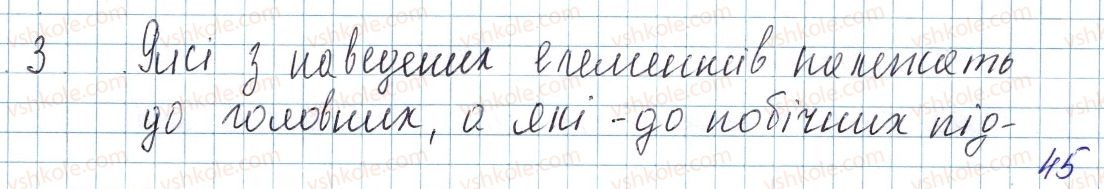 3 Які з наведених елементів належать
до головних, а які - до побічних під-
45